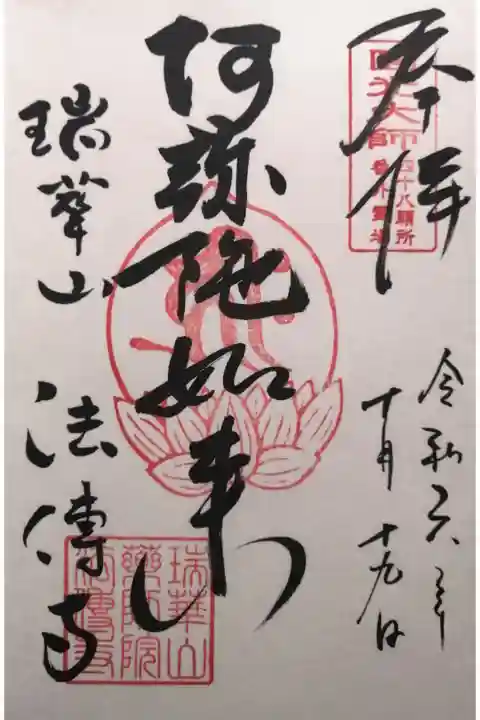 奉拝
圓光大師
四十八願所
令和六年
十月十九日
阿弥陀如来
瑞華山
法傳寺
瑞華山
藥師院
法傳寺